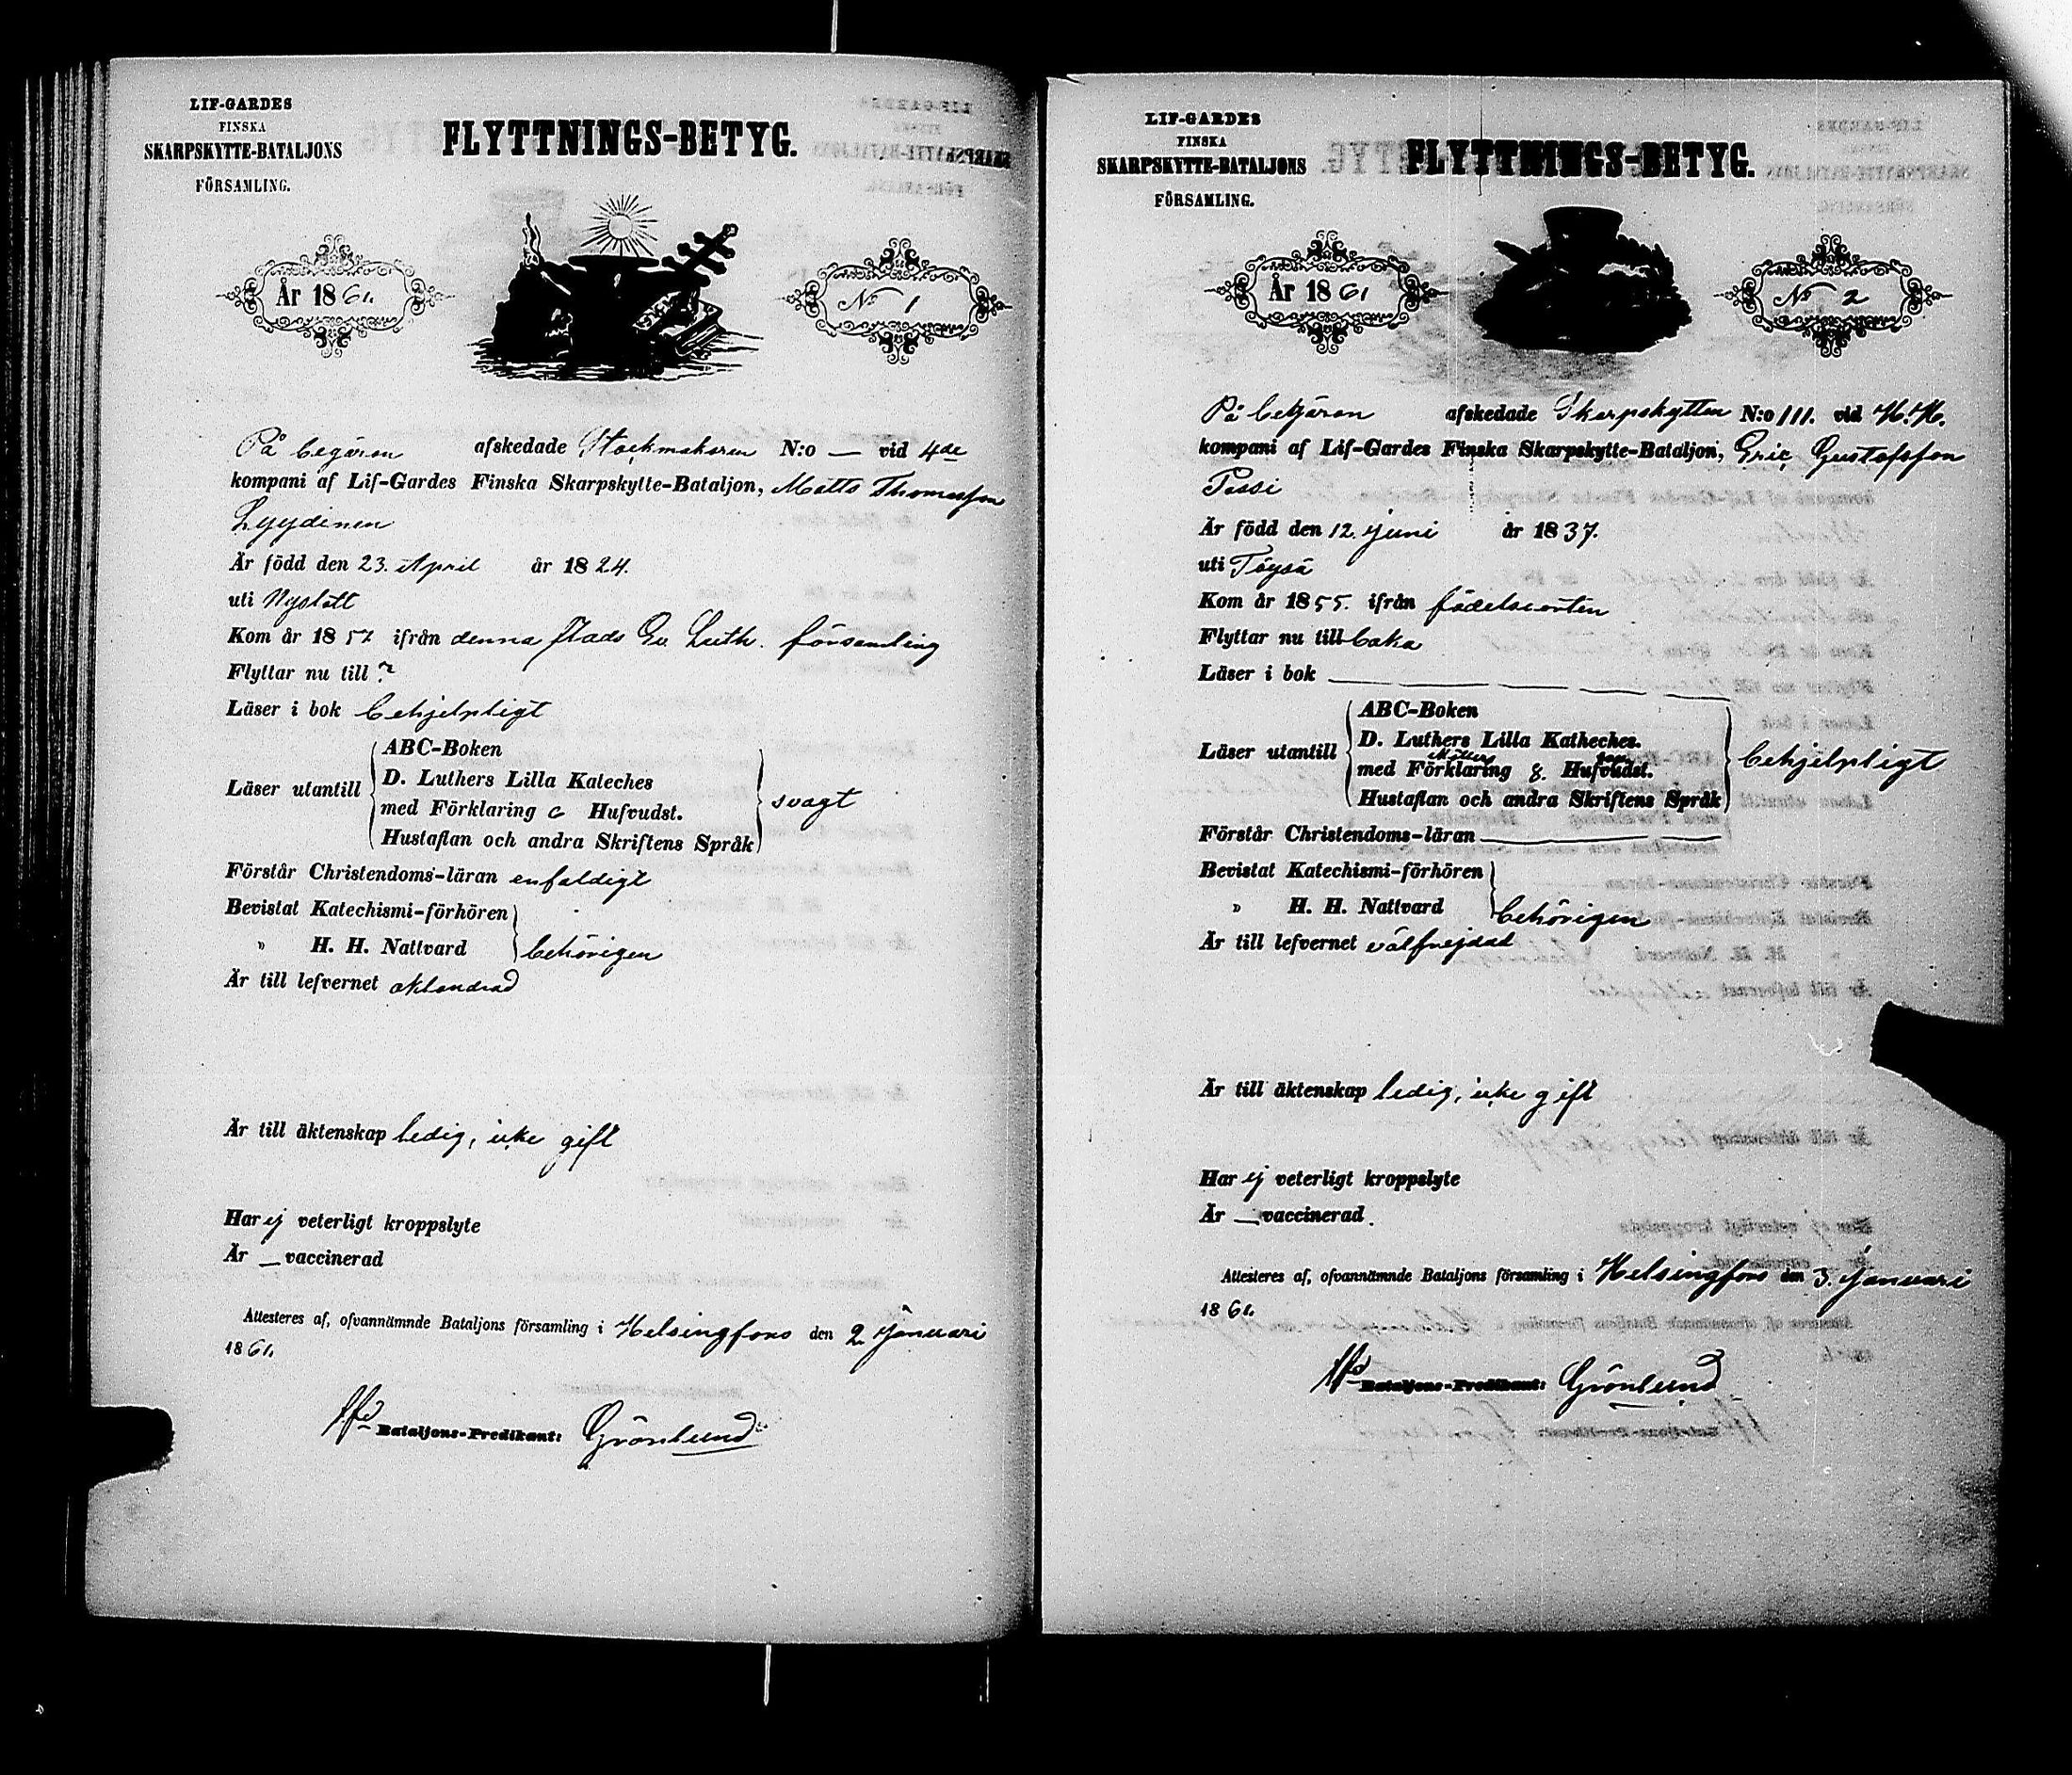 LIF-GARDES
FINSKA
SKARPSKYTTE-BATALJONS
FÖRSAMLING.
FLYTTNINGS-BETYG.
År 1861.
No 1
På begäran afskedade Stockmakaren N:o — vid 4de
kompani af Lif-Gardes Finska Skarpskytte-Bataljon, Matts Thomasson
Lyydinen
Är född den 23. April år 1824.
uti Nyslott
Kom år 1857 ifrån denna stads Ev. Luth. församling
Flyttar nu till ?
Läser i bok behjelpligt
Läser utantill
ABC-Boken
D. Luthers Lilla Kateches
med Förklaring c Hufvudst.
Hustaflan och andra Skriftens Språk
svagt
Förstår Christendoms-läran enfaldigt
Bevistat Katechismi-förhören
" H. H. Nattvard behörigen
Är till lefvernet oklandrad
Är till äktenskap ledig, icke gift
Har ej veterligt kroppslyte
Är — vaccinerad
Attesteres af, ofvannämnde Bataljons församling i Helsingfors den 2 Januari
1861.
Bataljons-Predikant: Grönlund
LIF-GARDES
FINSKA
SKARPSKYTTE-BATALJONS
FÖRSAMLING.
FLYTTNINGS-BETYG.
År 1861
No 2
På begäran afskedade Skarpskytten N:o 111. vid H.H.
kompani af Lif-Gardes Finska Skarpskytte-Bataljon, Eric Gustafsson
Passi
Är född den 12. Juni år 1837.
uti Töysä
Kom år 1855. ifrån födelseorten
Flyttar nu tillbaka
Läser i bok —
Läser utantill
ABC-Boken
D. Luthers Lilla Katheches.
med Förklaring g. Hufvudst.
Hustaflan och andra Skriftens Språk
behjelpligt
Förstår Christendoms-läran —
Bevistat Katechismi-förhören
" H. H. Nattvard behörigen
Är till lefvernet välfrejdad
Är till äktenskap ledig, icke gift
Har ej veterligt kroppslyte
Är — vaccinerad
Attesteres af, ofvannämnde Bataljons församling i Helsingfors den 3. Januari
1861.
Bataljons-Predikant: Grönlund